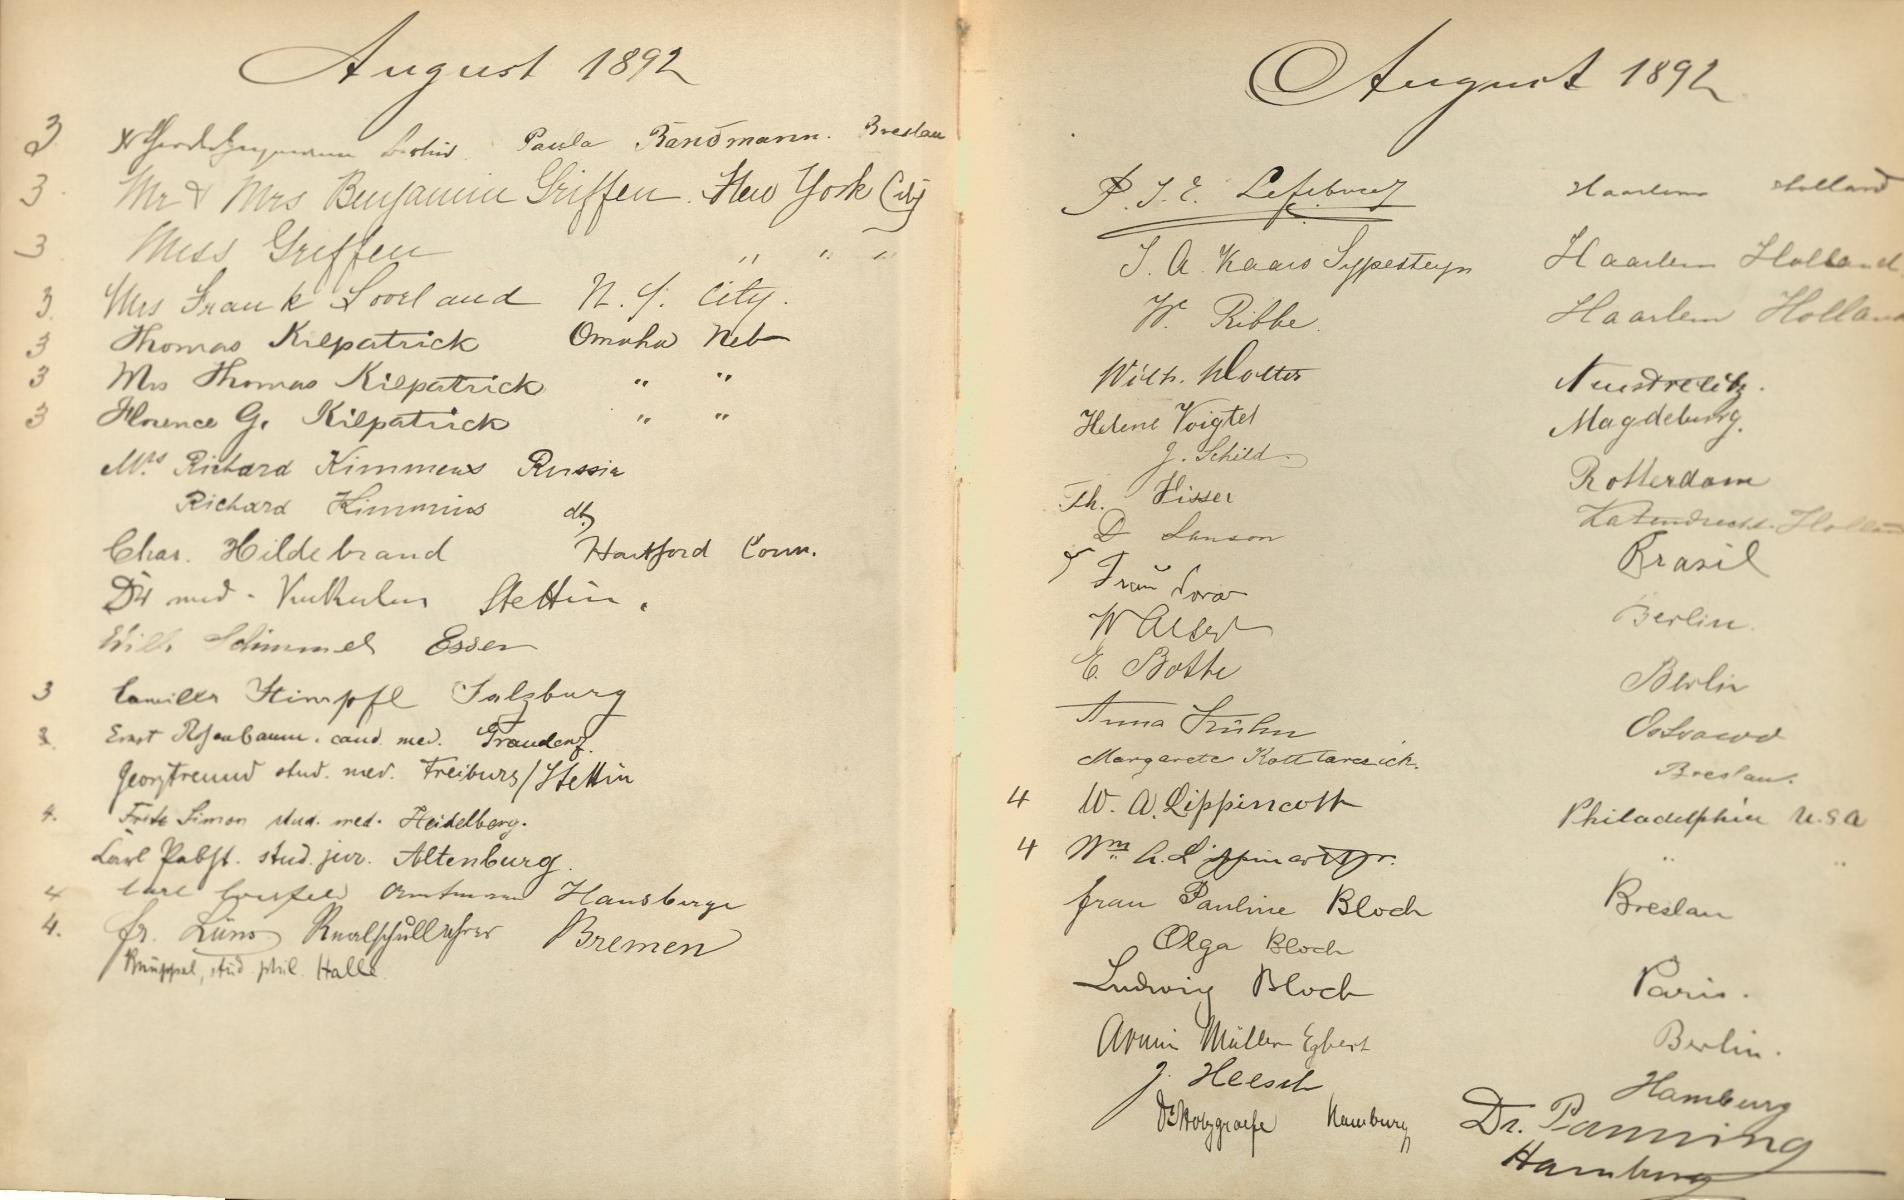 August 1892
3 Paula Bandmann. Breslau
3. Mr & Mrs Benjamin Griffen. New York City
3 Miss Griffen " " "
3. Mrs Frank Loveland N. Y. City.
3 Thomas Kilpatrick Omaha Neb
3 Mrs Thomas Kilpatrick " "
3 Florence G. Kilpatrick " "
Mrs Richard Kimmens Russia
Richard Kimmins
Chas. Hildebrand Hartford Conn.
Dr med. Stettin.
Wilh. Schimmel Essen
3 Stimpfl Salzburg
3. Ernst Rosenbaum. cand. med. Graudenz.
Georg Freund stud. med. Freiburg/Stettin
4. Fritz Simon stud. med. Heidelberg.
Carl Pabst. stud. jur. Altenburg.
4 Carl Amtmann Hansberge
4. fr. Lüns Realschullehrer Bremen
Knüppel, stud. phil. Halle
August 1892
P. J. E. Haarlem Holland
J. A. Kaars Sypesteyn Haarlem Holland
W. Ribbe. Haarlem Holland
Wilh. Wolter Neustrelitz.
Helene Voigtel Magdeburg.
J. Schild
Th. Visser Rotterdam
D Holland
Frau Brasil
W Berlin.
E. Bothe Berlin
Anna Ostrowo
Margarete Breslau.
4 W. A. Lippincott Philadelphia U.S.A
4 Wm. A. Lippincott Jr. " "
Frau Pauline Bloch Breslau
Olga Bloch
Ludwig Bloch Paris.
Armin Müller Egbert Berlin.
J. Heesch Hamburg
Dr Holzgraefe Hamburg
Dr. Panning
Hamburg